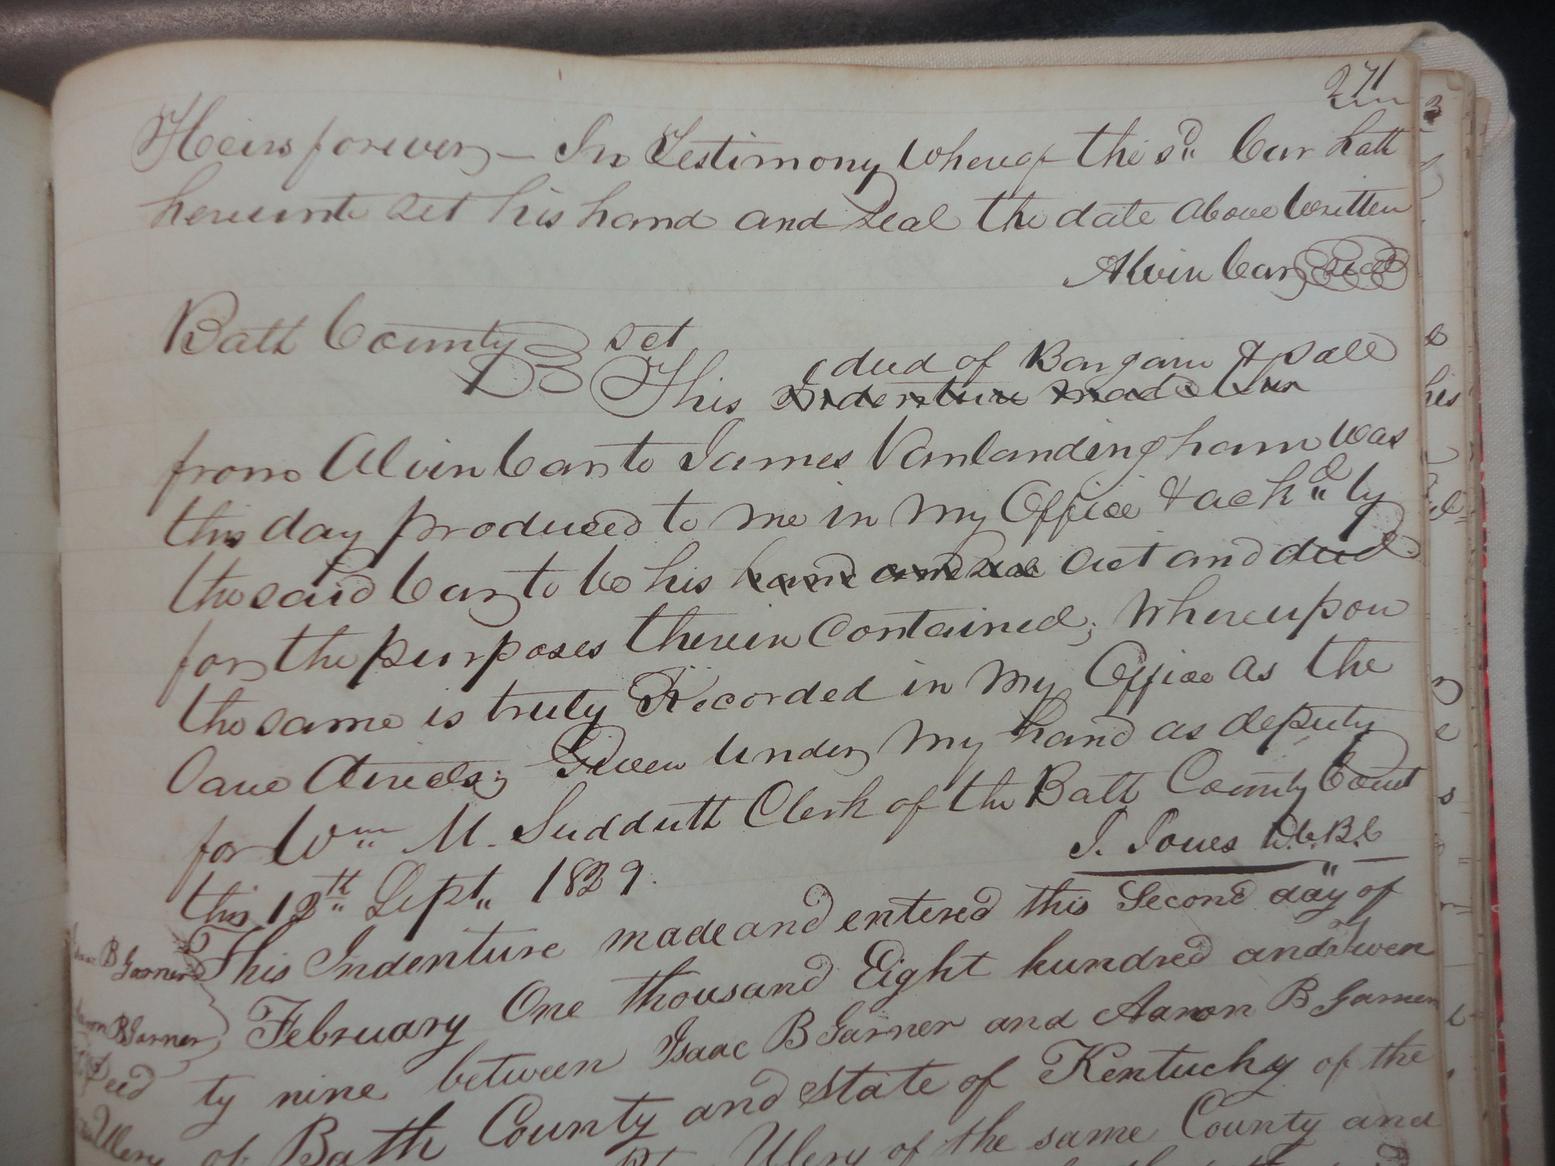 271
Heirs forever, — In Testimony Whereof the sd. Carr hath
hereunto set his hand and Seal the date above written
Alvin Carr Seal
Bath County Sct
deed of Bargain & Sale
This Indenture made Carr
from Alvin Carr to James Vanlandingham was
this day produced to me in my Office & ackd. by
the said Carr to be his hand and seal act and deed
for the purposes therein Contained; Whereupon
the same is truly Recorded in my Office as the
Law directs; Given under my hand as deputy
for Wm. M. Sudduth Clerk of the Bath County Court
this 12th Sept. 1829.
J. Jones D.C.B.C
This Indenture made and entered this Second day of
February One thousand Eight hundred and twen
ty nine between Isaac B Garner and Aaron B Garner
of Bath County and State of Kentucky of the
Ulery of the same County and
B Garner
B Garner
Deed
Ulery